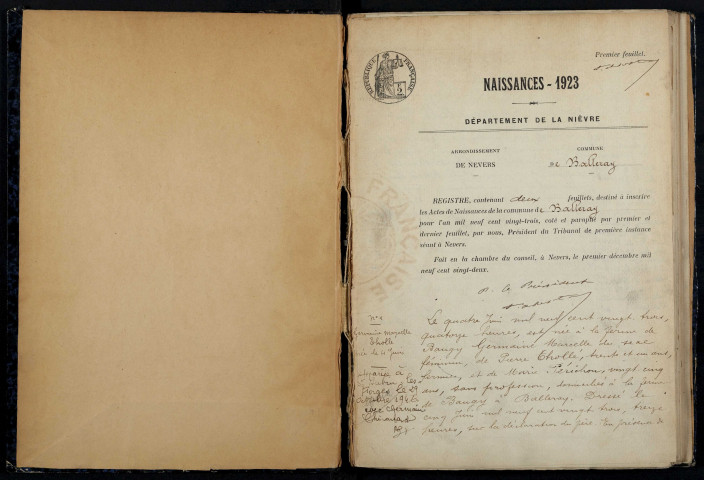 Premier feuillet.
RÉPUBLIQUE FRANÇAISE
NAISSANCES - 1923
DÉPARTEMENT DE LA NIÈVRE
ARRONDISSEMENT
DE NEVERS
COMMUNE
de Balleray
REGISTRE, contenant deux feuillets, destiné à inscrire
les Actes de Naissances de la commune de Balleray
pour l'an mil neuf cent vingt-trois, coté et paraphé par premier et
dernier feuillet, par nous, Président du Tribunal de première instance
séant à Nevers.
Fait en la chambre du conseil, à Nevers, le premier décembre mil
neuf cent vingt-deux.
P. le Président
FRANÇAISE
N° 1
Germaine
Tholle
née le 4 Juin
Mariée à
les
Forges le 29
1946
avec Germain
Le quatre Juin mil neuf cent vingt trois,
quatorze heures, est née à la ferme de
Baugy Germaine Marcelle du sexe
féminin, de Pierre Tholle, trente et un ans,
fermier, et de Marie Périchon, vingt cinq
ans, sans profession, domiciliés à la ferme
de Baugy à Balleray. Dressé le
cinq Juin mil neuf cent vingt trois, treize
heures, sur la déclaration du père. En présence de